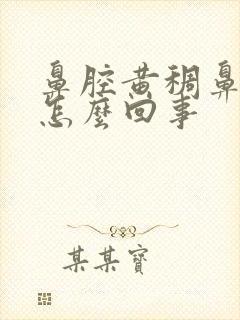 鼻腔黄稠鼻
怎麼回事
某某寶